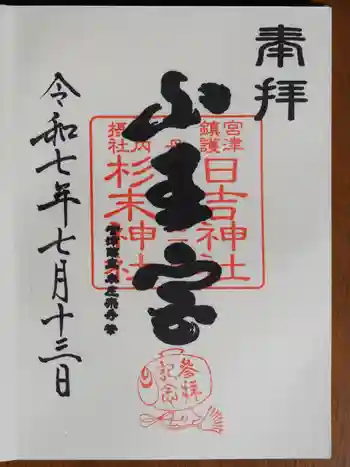 奉拝
宮津
鎮護
日吉神社
山王宮
摂社
杉末神社
令和七年七月十三日
參拝
記念